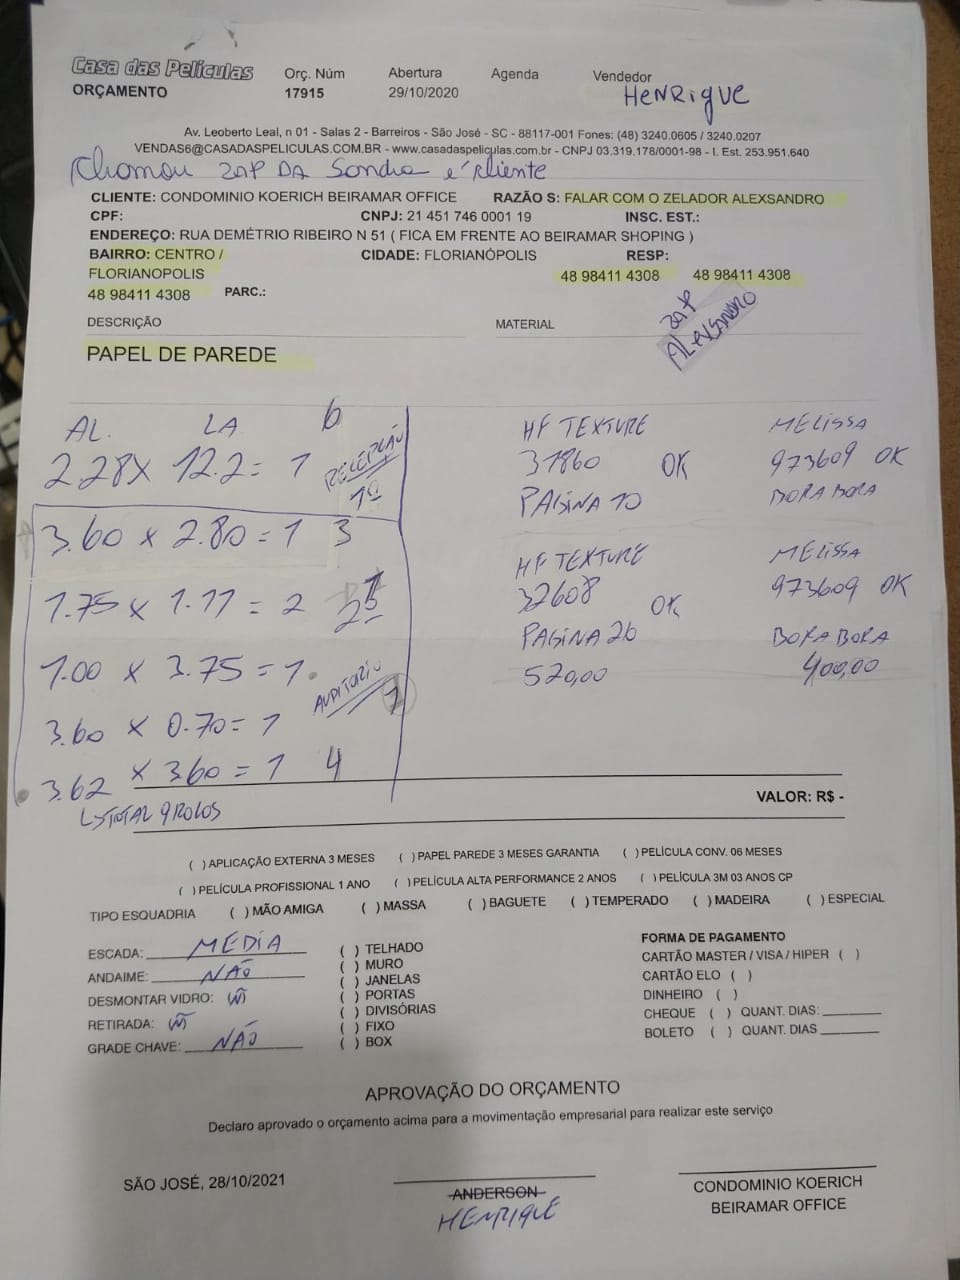 Casa das Películas
ORÇAMENTO
Orç. Núm
17915
Abertura
29/10/2020
Agenda
Vendedor
HENRIQUE
Av. Leoberto Leal, n 01 - Salas 2 - Barreiros - São José - SC - 88117-001 Fones: (48) 3240.0605 / 3240.0207
VENDAS6@CASADASPELICULAS.COM.BR - www.casadaspeliculas.com.br - CNPJ 03.319.178/0001-98 - I. Est. 253.951.640
Chamou zap DA Sondra é cliente
CLIENTE: CONDOMINIO KOERICH BEIRAMAR OFFICE RAZÃO S: FALAR COM O ZELADOR ALEXSANDRO
CPF: CNPJ: 21 451 746 0001 19 INSC. EST.:
ENDEREÇO: RUA DEMÉTRIO RIBEIRO N 51 ( FICA EM FRENTE AO BEIRAMAR SHOPING )
BAIRRO: CENTRO / CIDADE: FLORIANÓPOLIS RESP:
FLORIANOPOLIS 48 98411 4308 48 98411 4308
48 98411 4308 PARC.:
ZAP
ALEXSANDRO
DESCRIÇÃO MATERIAL
PAPEL DE PAREDE
AL. LA 6
2.28 X 12.2 = 1 RECEPÇÃO
1º
3.60 x 2.80 = 1 3
1.75 x 1.11 = 2
1.00 x 3.75 = 1.
AUDITORIO 1
3.60 x 0.70 = 1
3.62 x 3.60 = 1 4
TOTAL 9 ROLOS
HF TEXTURE
31860 OK
PAGINA 10
MELISSA
973609 OK
BORA BORA
HF TEXTURE
32608 OK
PAGINA 26
520,00
MELISSA
973609 OK
BORA BORA
400,00
VALOR: R$ -
( ) APLICAÇÃO EXTERNA 3 MESES ( ) PAPEL PAREDE 3 MESES GARANTIA ( ) PELÍCULA CONV. 06 MESES
( ) PELÍCULA PROFISSIONAL 1 ANO ( ) PELÍCULA ALTA PERFORMANCE 2 ANOS ( ) PELÍCULA 3M 03 ANOS CP
TIPO ESQUADRIA ( ) MÃO AMIGA ( ) MASSA ( ) BAGUETE ( ) TEMPERADO ( ) MADEIRA ( ) ESPECIAL
ESCADA: MEDIA
ANDAIME: NÃO
DESMONTAR VIDRO: Ñ
RETIRADA: Ñ
GRADE CHAVE: NÃO
( ) TELHADO
( ) MURO
( ) JANELAS
( ) PORTAS
( ) DIVISÓRIAS
( ) FIXO
( ) BOX
FORMA DE PAGAMENTO
CARTÃO MASTER / VISA / HIPER ( )
CARTÃO ELO ( )
DINHEIRO ( )
CHEQUE ( ) QUANT. DIAS:
BOLETO ( ) QUANT. DIAS
APROVAÇÃO DO ORÇAMENTO
Declaro aprovado o orçamento acima para a movimentação empresarial para realizar este serviço
SÃO JOSÉ, 28/10/2021
ANDERSON
HENRIQUE
CONDOMINIO KOERICH
BEIRAMAR OFFICE